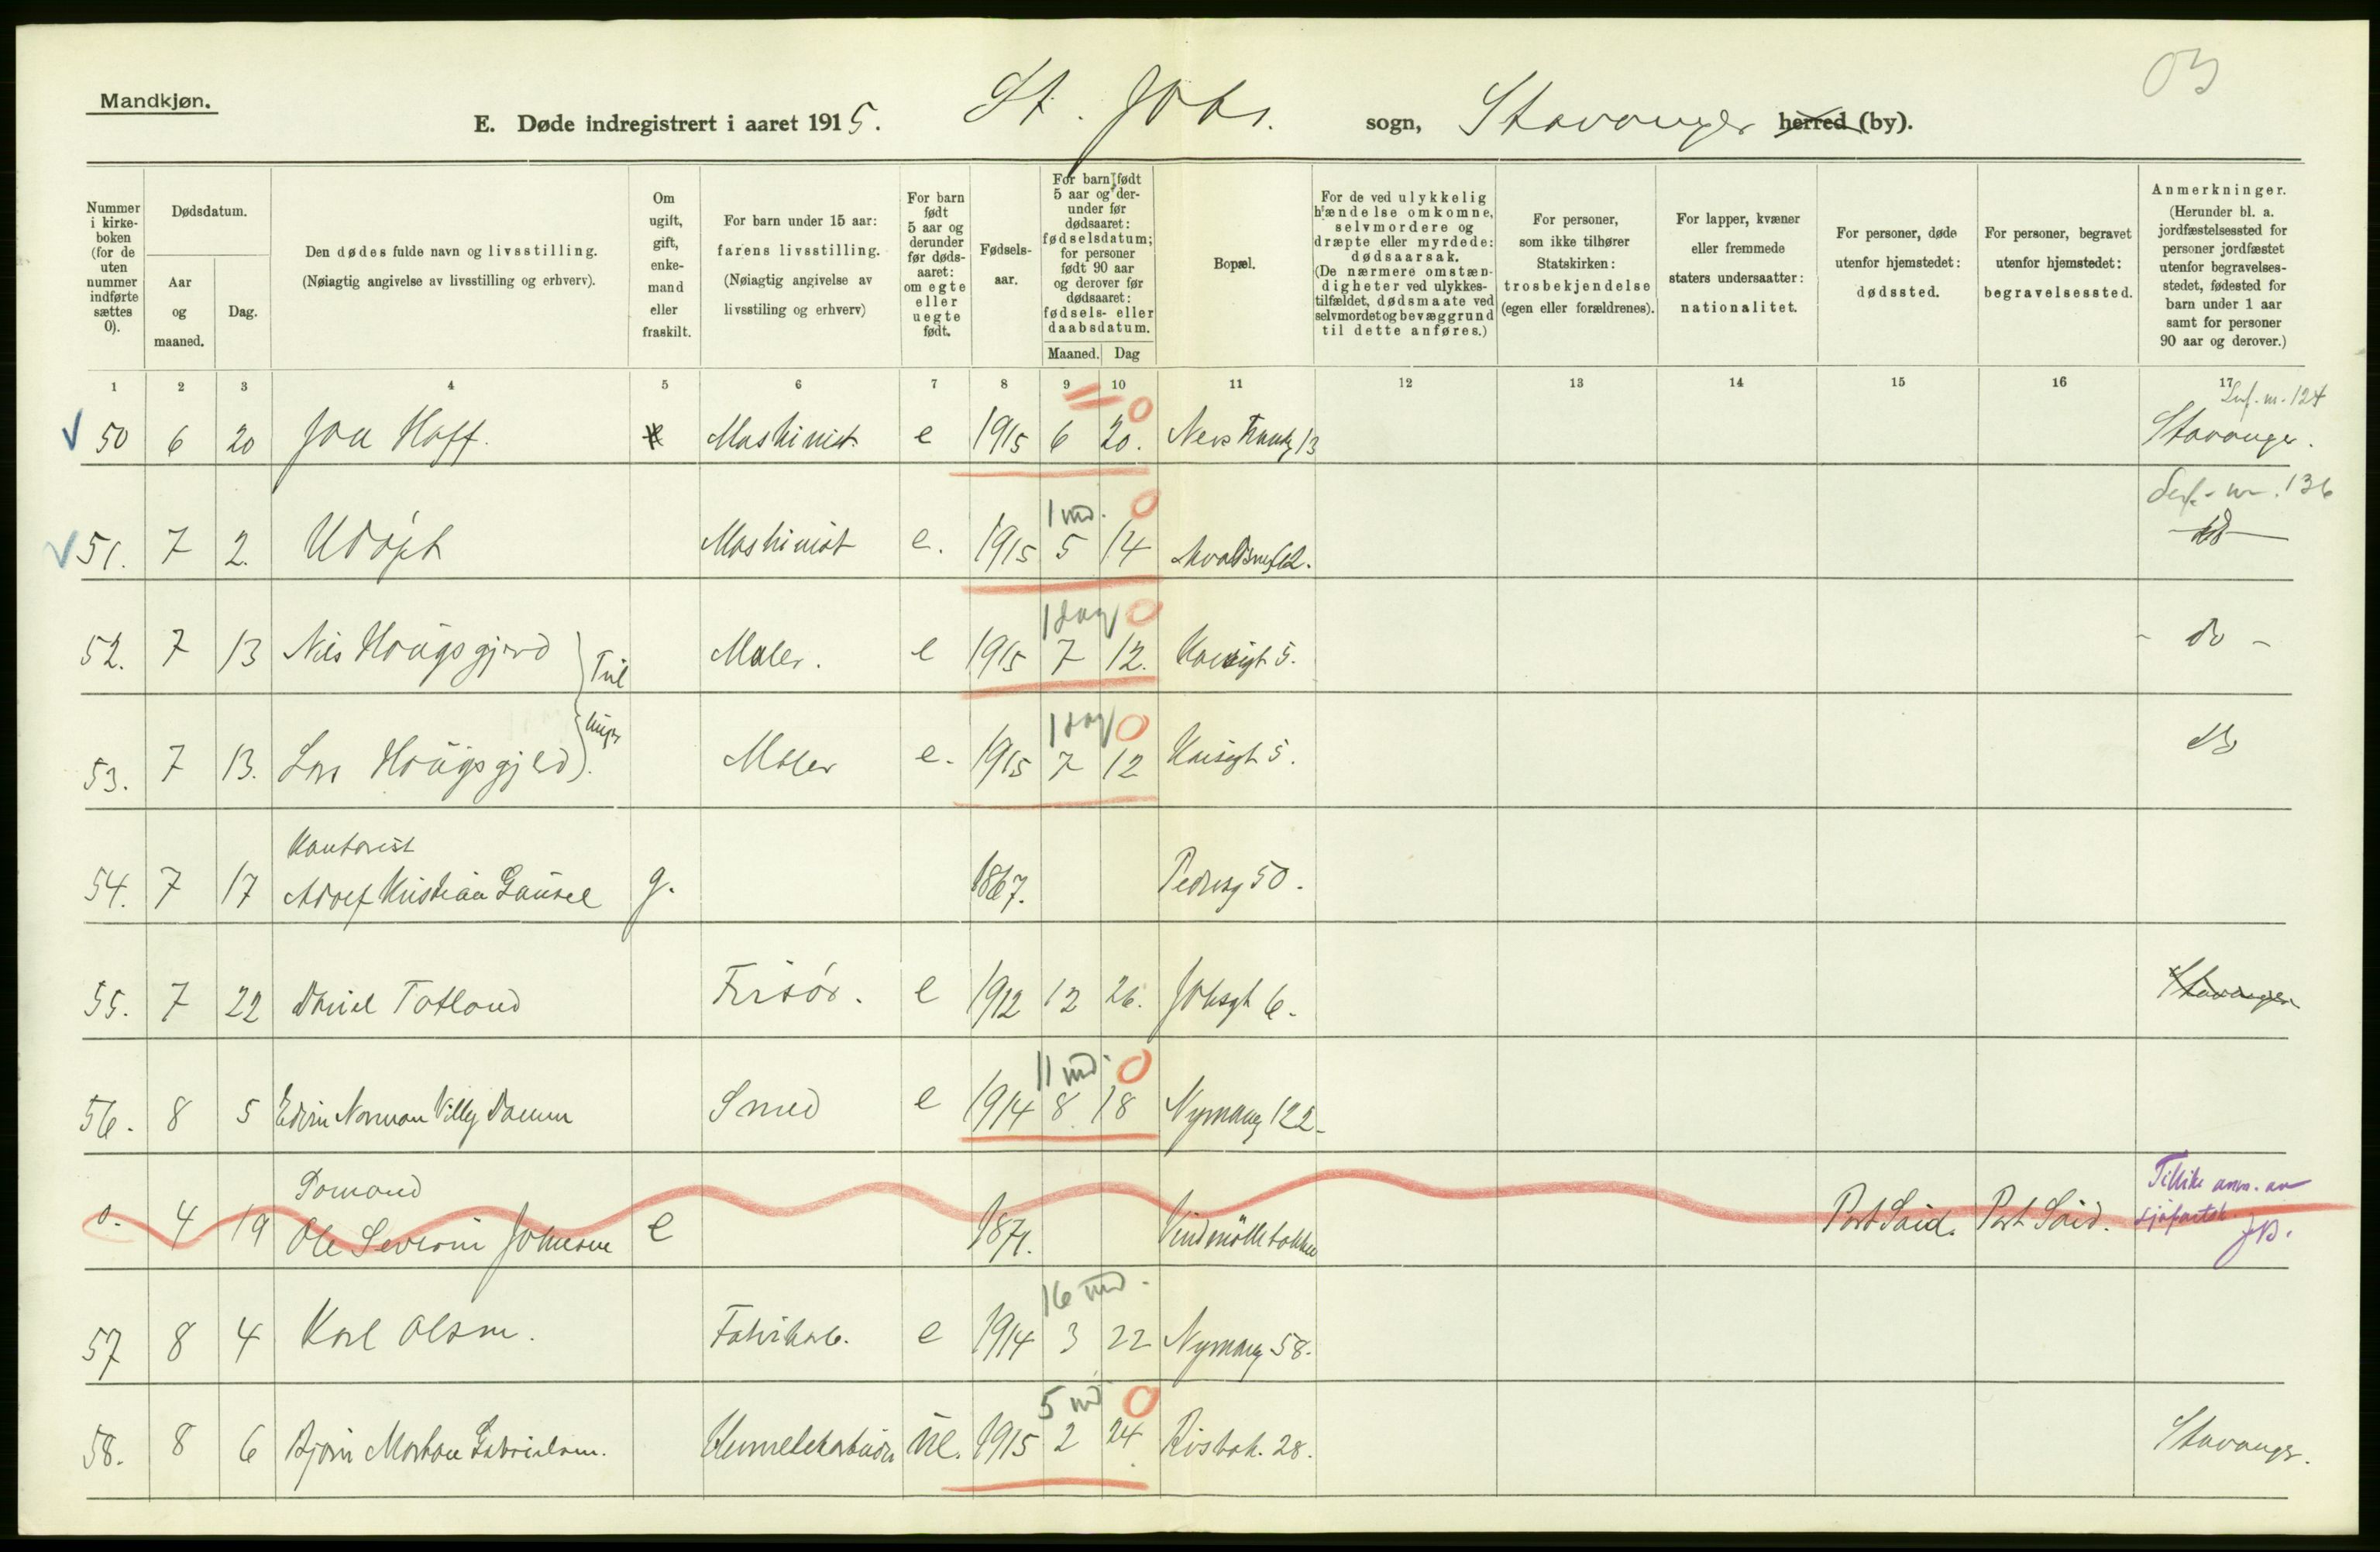 03
Mandkjøn.
E. Døde indregistrert i aaret 1915. St. Johs. sogn, Stavanger herred (by).
Nummer i kirkeboken (for de uten nummer indførte sættes 0).
Dødsdatum.
Aar og maaned.
Dag.
Den dødes fulde navn og livsstilling.
(Nøiagtig angivelse av livsstilling og erhverv).
Om ugift, gift, enkemand eller fraskilt.
For barn under 15 aar: farens livsstilling.
(Nøiagtig angivelse av livsstiling og erhverv)
For barn født 5 aar og derunder før dødsaaret: om egte eller uegte født.
Fødselsaar.
For barn født 5 aar og derunder før dødsaaret: fødselsdatum; for personer født 90 aar og derover før dødsaaret: fødsels- eller daabsdatum.
Maaned. Dag
Bopæl.
For de ved ulykkelig hændelse omkomne, selvmordere og dræpte eller myrdede: dødsaarsak.
(De nærmere omstændigheter ved ulykkestilfældet, dødsmaate ved selvmordet og bevæggrund til dette anføres.)
For personer, som ikke tilhører Statskirken: trosbekjendelse (egen eller forældrenes).
For lapper, kvæner eller fremmede staters undersaatter: nationalitet.
For personer, døde utenfor hjemstedet: dødssted.
For personer, begravet utenfor hjemstedet: begravelsessted.
Anmerkninger.
(Herunder bl. a. jordfæstelsessted for personer jordfæstet utenfor begravelsesstedet, fødested for barn under 1 aar samt for personer 90 aar og derover.)
1 2 3 4 5 6 7 8 9 10 11 12 13 14 15 16 17
124
50 6 20 Hoff. e Maskinist e 1915 6 20. 13 Stavanger.
136
1 md. 0
51. 7 2. Udøpt Maskinist e. 1915 5 14 do
1 dag 0
52. 7 13 Nils Hougsgjerd Tvil Maler. e 1915 7 12. 5. - do -
1 dag 0
53. 7 13. Lars Hougsgjerd linger Maler e. 1915 7 12 5. do
Kontorist
54. 7 17 Adolf Kristian Gausel g. 1867. Pedersg 50.
55. 7 22 Daniel Totland Frisør. e 1912 12 26. Johsgt 6. Stavanger
11 md. 0
56. 8 5 Edvin Norman Villy Damm Smed e 1914 8 18 Nymansv 122
Sømand
0. 4 19 Ole Severin Johnsen e 1871. Vindmøllebakken Port Said. Port Said. Tillike anm. av sjøfartsk. JB.
16 md.
57 8 4 Karl Olsen. Fabrikarb. e 1914 3 22 Nymansv 58.
5 md 0
58. 8 6 Bjørn Morton Gabrielsen. Hermetikarbeider ue. 1915 2 24. Risbak. 28. Stavanger.